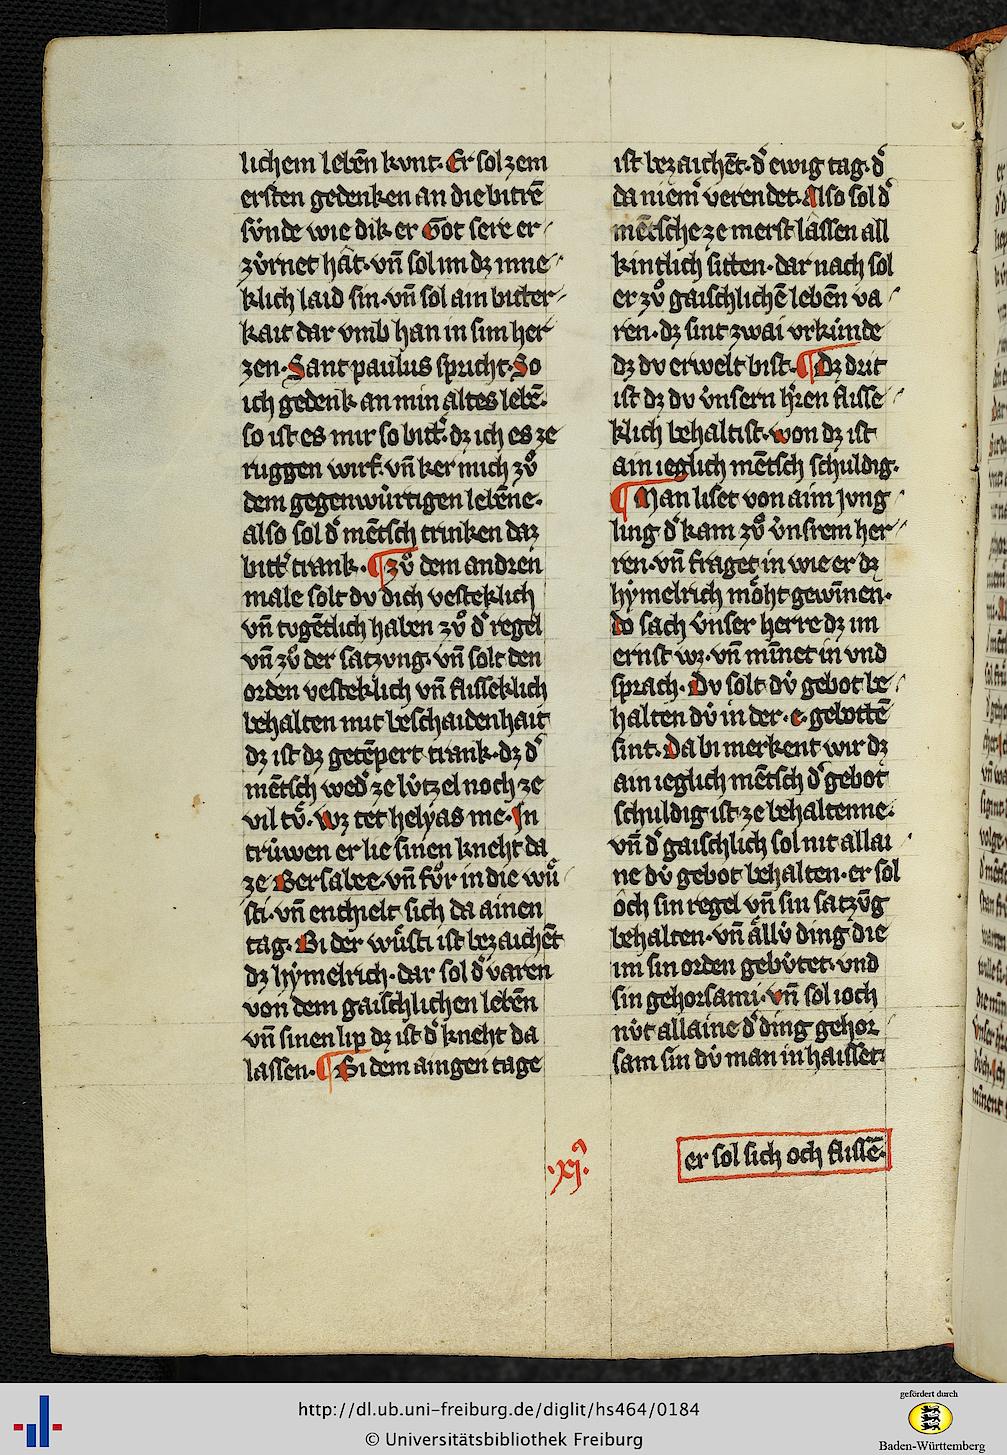 lichem lebēn kvnt. Er sol zem
ersten gedenken an die bitrē
sv́nde wie dik er Got sere er
zv́rnet hât. vn̄ sol im dz inne
klich laid sin. vn̄ sol ain bitter
kait dar vmb han in sim her
zen. Sant paulus spricht. So
ich gedenk an min altes lebē.
so ist es mir so bitt͛. dz ich es ze
ruggen wirf. vn̄ ker mich zv̊
dem gegenwúrtigen lebēne.
also sol d͛ mētsch trinken daz
bitt͛ trank. ¶ zv̊ dem andren
male solt dv dich vesteklich
vn̄ tvgētlich haben zv̊ d͛ regel
vn̄ zv̊ der satzvng. vn̄ solt den
orden vesteklich vn̄ flisseklich
behalten mit beschaidenhait
dz ist dz getēpert trank. dz d͛
mētsch wed͛ ze lv́tzel noch ze
vil tv̊. wz tet helyas me. In
trúwen er lie sinen kneht da
ze Bersabee. vn̄ fv̊r in die wů
sti. vn̄ enthielt sich da ainen
tag. Bi der wůsti ist bezaichēt
dz hẏmelrich. dar sol d͛ varen
von dem gaischlichen lebēn
vn̄ sinen lip dz ist d͛ kneht da
lassen. ¶ Bi dem aingen tage
ist bezaichēt. d͛ ewig tag. d͛
da niem͛ verendet. Also sol d͛
mētsche ze merst lâssen all
kintlich sitten. dar nach sol
er zv̊ gaischlichē lebēn va
ren. dz sint zwai vrkúnde
dz dv erwelt bist. ¶ Dz drit
ist dz dv v́nsern h͛ren flisse
klich behaltist. won dz ist
ain ieglich mētsch schuldig.
¶ Man liset von aim jvng
ling d͛ kam zv̊ v́nsrem her
ren. vn̄ fraget in wie er dz
hẏmelrich mo̊ht gewīnen.
do sach v́nser herre dz im
ernst wz. vn̄ mīnet in vnd
sprach. Dv solt dv́ gebot be
halten dv́ in der .e. gebottē
sint. Da bi merkent wir dz
ain ieglich mētsch d͛ gebot
schuldig ist ze behaltenne.
vn̄ d͛ gaischlich sol nit allai
ne dv́ gebot behalten. er sol
och sin regel vn̄ sin satzv̄g
behalten. vn̄ ällv́ ding die
im sin orden gebv́tet. vnd
sin gehorsami. vn̄ sol ioch
nv́t allaine d͛ ding gehor
sam sin dv́ man in haisset.
.xj͛.
er sol sich och flissē.
http://dl.ub.uni-freiburg.de/diglit/hs464/0184
© Universitätsbibliothek Freiburg
gefördert durch
Baden-Württemberg